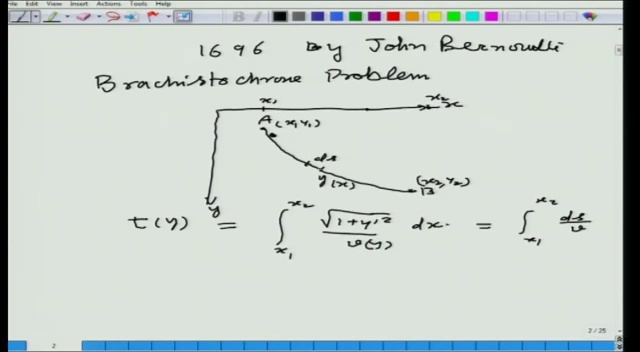 Edit View Insert Actions Tools Help
1696 by John Bernoulli
Brachistochrone Problem
x₁ x₂ x
A (x₁, y₁)
ds
y(x)
(x₂, y₂)
B
y
t(y) = ∫_{x₁}^{x₂} √(1+y'²) / v(y) dx. = ∫_{x₁}^{x₂} ds/v
2 / 25
2